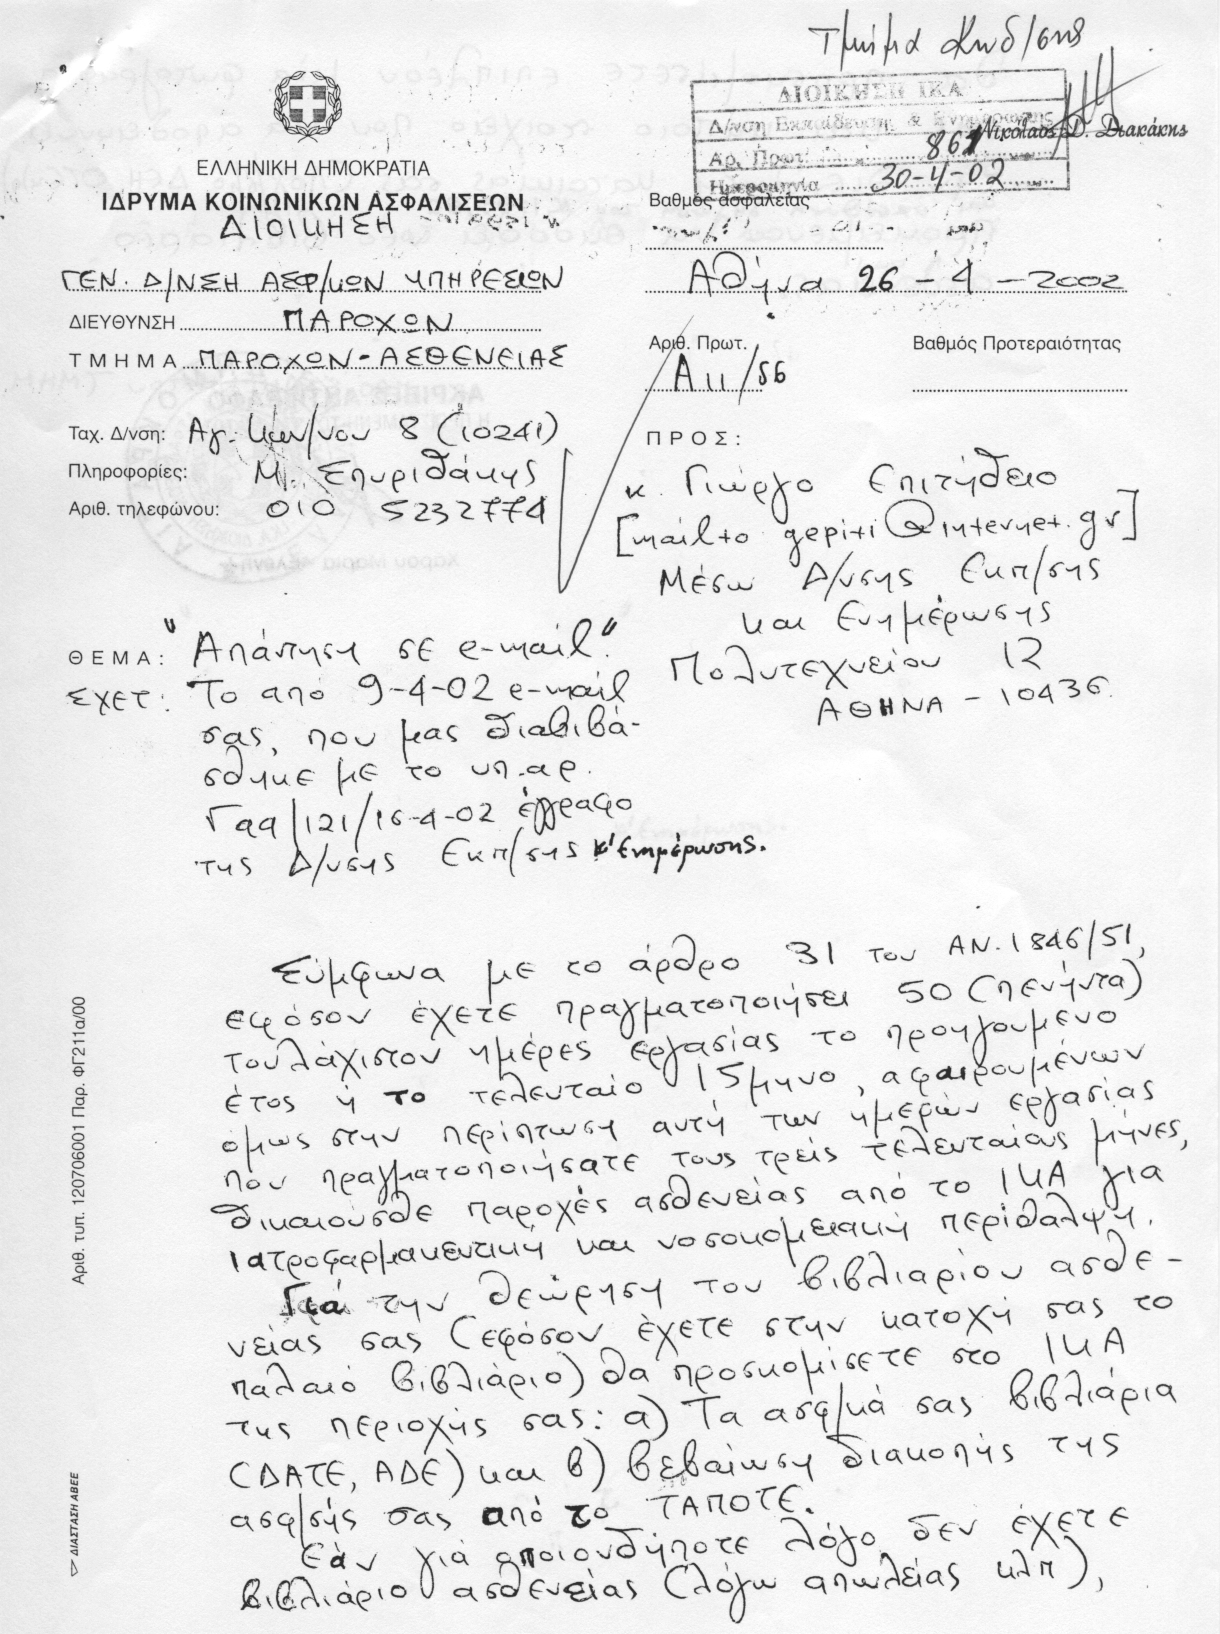 Τμήμα Κωδ/σης
ΔΙΟΙΚΗΣΗ ΙΚΑ
Δ/νση Εκπαίδευσης & Ενημέρωσης
Νικόλαος Δ. Διακάκης
Αρ. Πρωτ. 861
Ημερομηνία 30-4-02
ΕΛΛΗΝΙΚΗ ΔΗΜΟΚΡΑΤΙΑ
ΙΔΡΥΜΑ ΚΟΙΝΩΝΙΚΩΝ ΑΣΦΑΛΙΣΕΩΝ
ΔΙΟΙΚΗΣΗ
ΓΕΝ. Δ/ΝΣΗ ΑΣΦ/ΚΩΝ ΥΠΗΡΕΣΙΩΝ
ΔΙΕΥΘΥΝΣΗ ΠΑΡΟΧΩΝ
ΤΜΗΜΑ ΠΑΡΟΧΩΝ-ΑΣΘΕΝΕΙΑΣ
Ταχ. Δ/νση: Αγ. Κων/νου 8 (10241)
Πληροφορίες: Μ. Σπυριδάκης
Αριθ. τηλεφώνου: 010 5232774
Βαθμός ασφαλείας
Αθήνα 26-4-2002
Αριθ. Πρωτ. Βαθμός Προτεραιότητας
Α11/56
ΠΡΟΣ:
κ. Γιώργο Επιτήδειο
[mailto gepiti@internet.gr]
Μέσω Δ/νσης Εκπ/σης
και Ενημέρωσης
Πολυτεχνείου 12
ΑΘΗΝΑ - 10436
ΘΕΜΑ: "Απάντηση σε e-mail".
ΣΧΕΤ: Το από 9-4-02 e-mail
σας, που μας διαβιβά-
σθηκε με το υπ.αρ.
Γαα/121/16-4-02 έγγραφο
της Δ/νσης Εκπ/σης κ' Ενημέρωσης.
Σύμφωνα με το άρθρο 31 του ΑΝ.1846/51,
εφόσον έχετε πραγματοποιήσει 50 (πενήντα)
τουλάχιστον ημέρες εργασίας το προηγούμενο
έτος ή το τελευταίο 15μηνο, αφαιρουμένων
όμως στην περίπτωση αυτή των ημερών εργασίας
που πραγματοποιήσατε τους τρείς τελευταίους μήνες,
δικαιούσθε παροχές ασθενείας από το ΙΚΑ για
ιατροφαρμακευτική και νοσοκομειακή περίθαλψη.
Γιά την θεώρηση του βιβλιαρίου ασθε-
νείας σας (εφόσον έχετε στην κατοχή σας το
παλαιό βιβλιάριο) θα προσκομίσετε στο ΙΚΑ
της περιοχής σας: α) Τα ασφ/κά σας βιβλιάρια
(ΔΑΤΕ, ΑΔΕ) και β) βεβαίωση διακοπής της
ασφ/σής σας από το ΤΑΠΟΤΕ.
Εάν γιά οποιονδήποτε λόγο δεν έχετε
βιβλιάριο ασθενείας (λόγω απωλείας κλπ),
Αριθ. τυπ. 120706001 Παρ. ΦΓ211α/00
ΔΙΑΣΤΑΣΗ ΑΒΕΕ